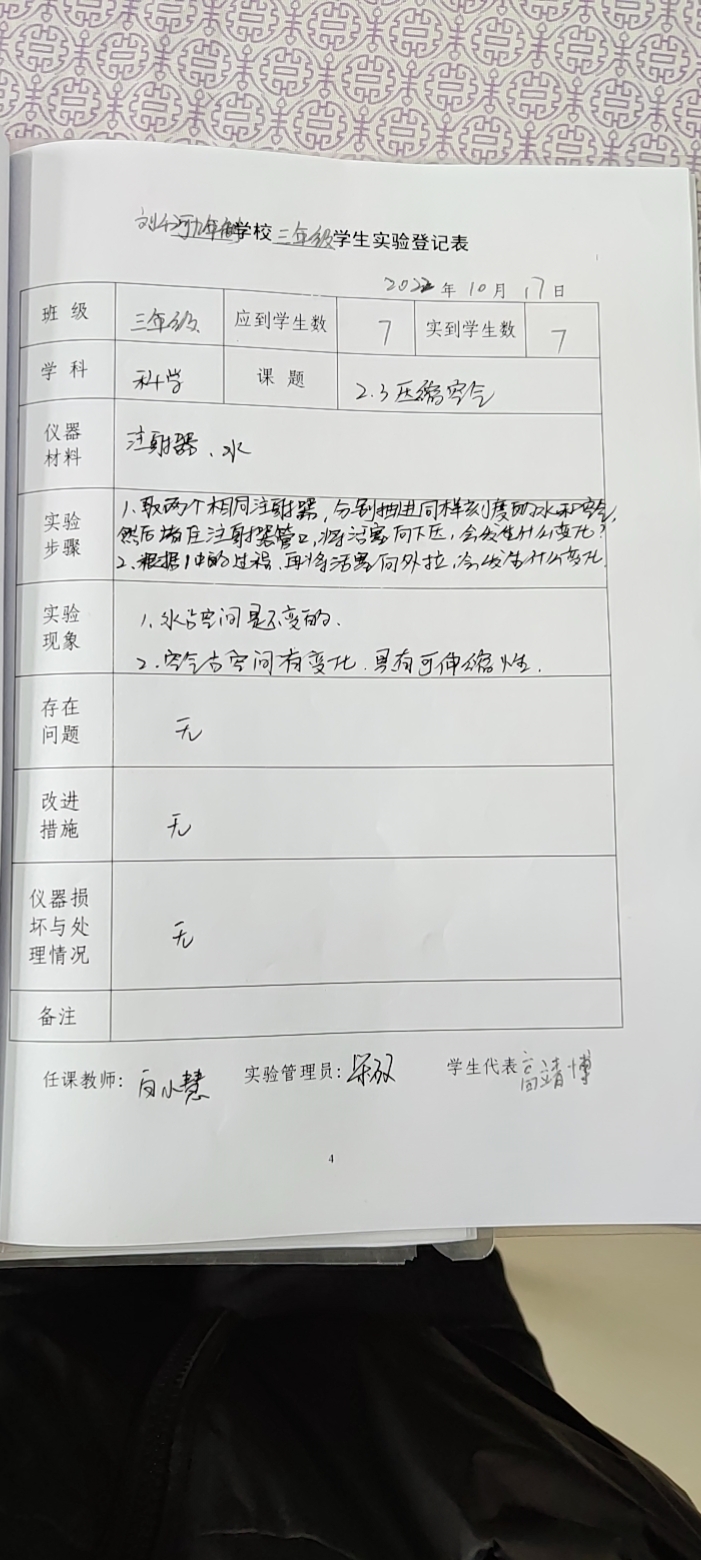 学校 三年级 学生实验登记表
2022 年 10 月 17 日
班 级 三年级 应到学生数 7 实到学生数 7
学 科 科学 课 题 2.3压缩空气
仪器
材料
注射器、水
实验
步骤
1.取两个相同注射器,分别抽进同样刻度的水和空气,
然后堵住注射器管口,将活塞向下压,会发生什么变化?
2.根据1中的过程,再将活塞向外拉,会发生什么变化.
实验
现象
1.水占空间是不变的.
2.空气占空间有变化.具有可伸缩性.
存在
问题
无
改进
措施
无
仪器损
坏与处
理情况
无
备注
任课教师: 向小慧 实验管理员: 学生代表 高靖博
4